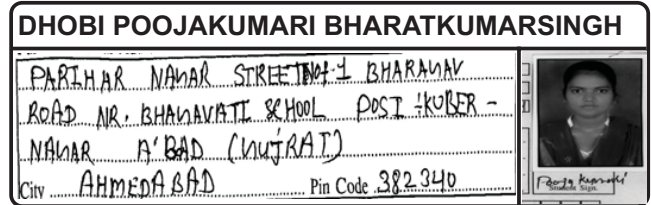 DHOBI POOJAKUMARI BHARATKUMARSINGH
PARIHAR NAGAR STREET NO:-1 BHARGAV
ROAD NR. BHAGAVATI SCHOOL POST :- KUBER -
NAGAR A'BAD (GUJRAT)
City AHMEDABAD Pin Code 382340
Pooja Kumari
Student Sign.